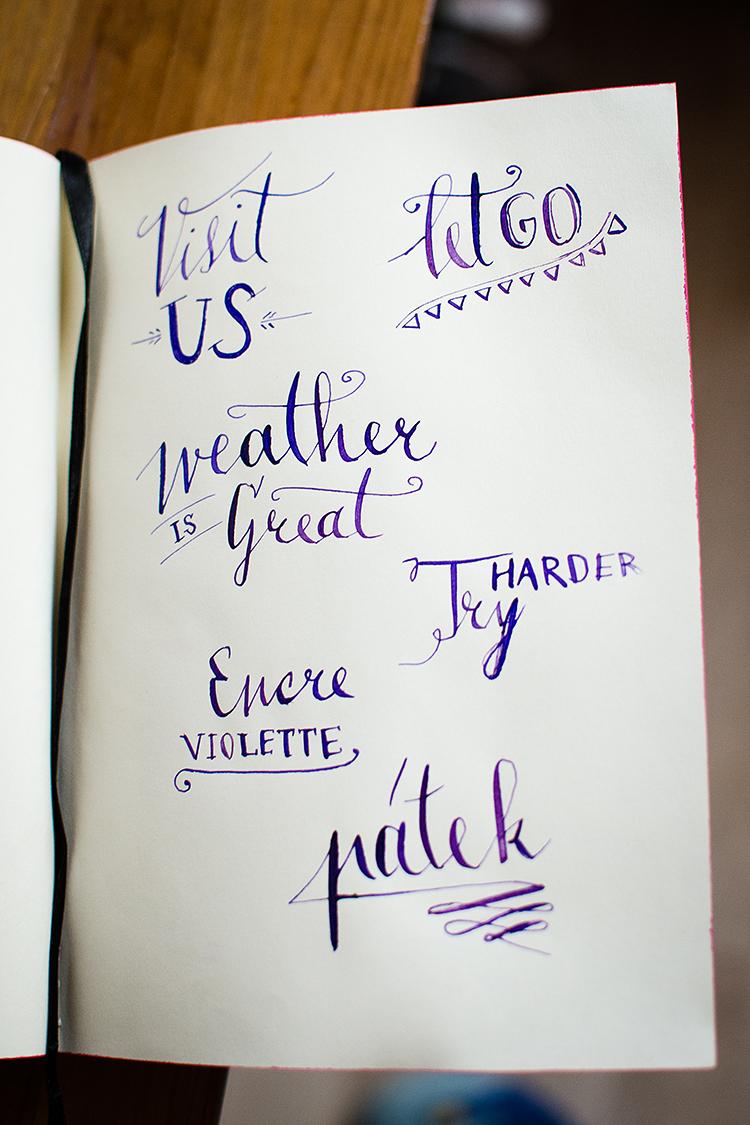 Visit
US
let GO
Weather
IS Great
Try HARDER
Encre
VIOLETTE
pátek